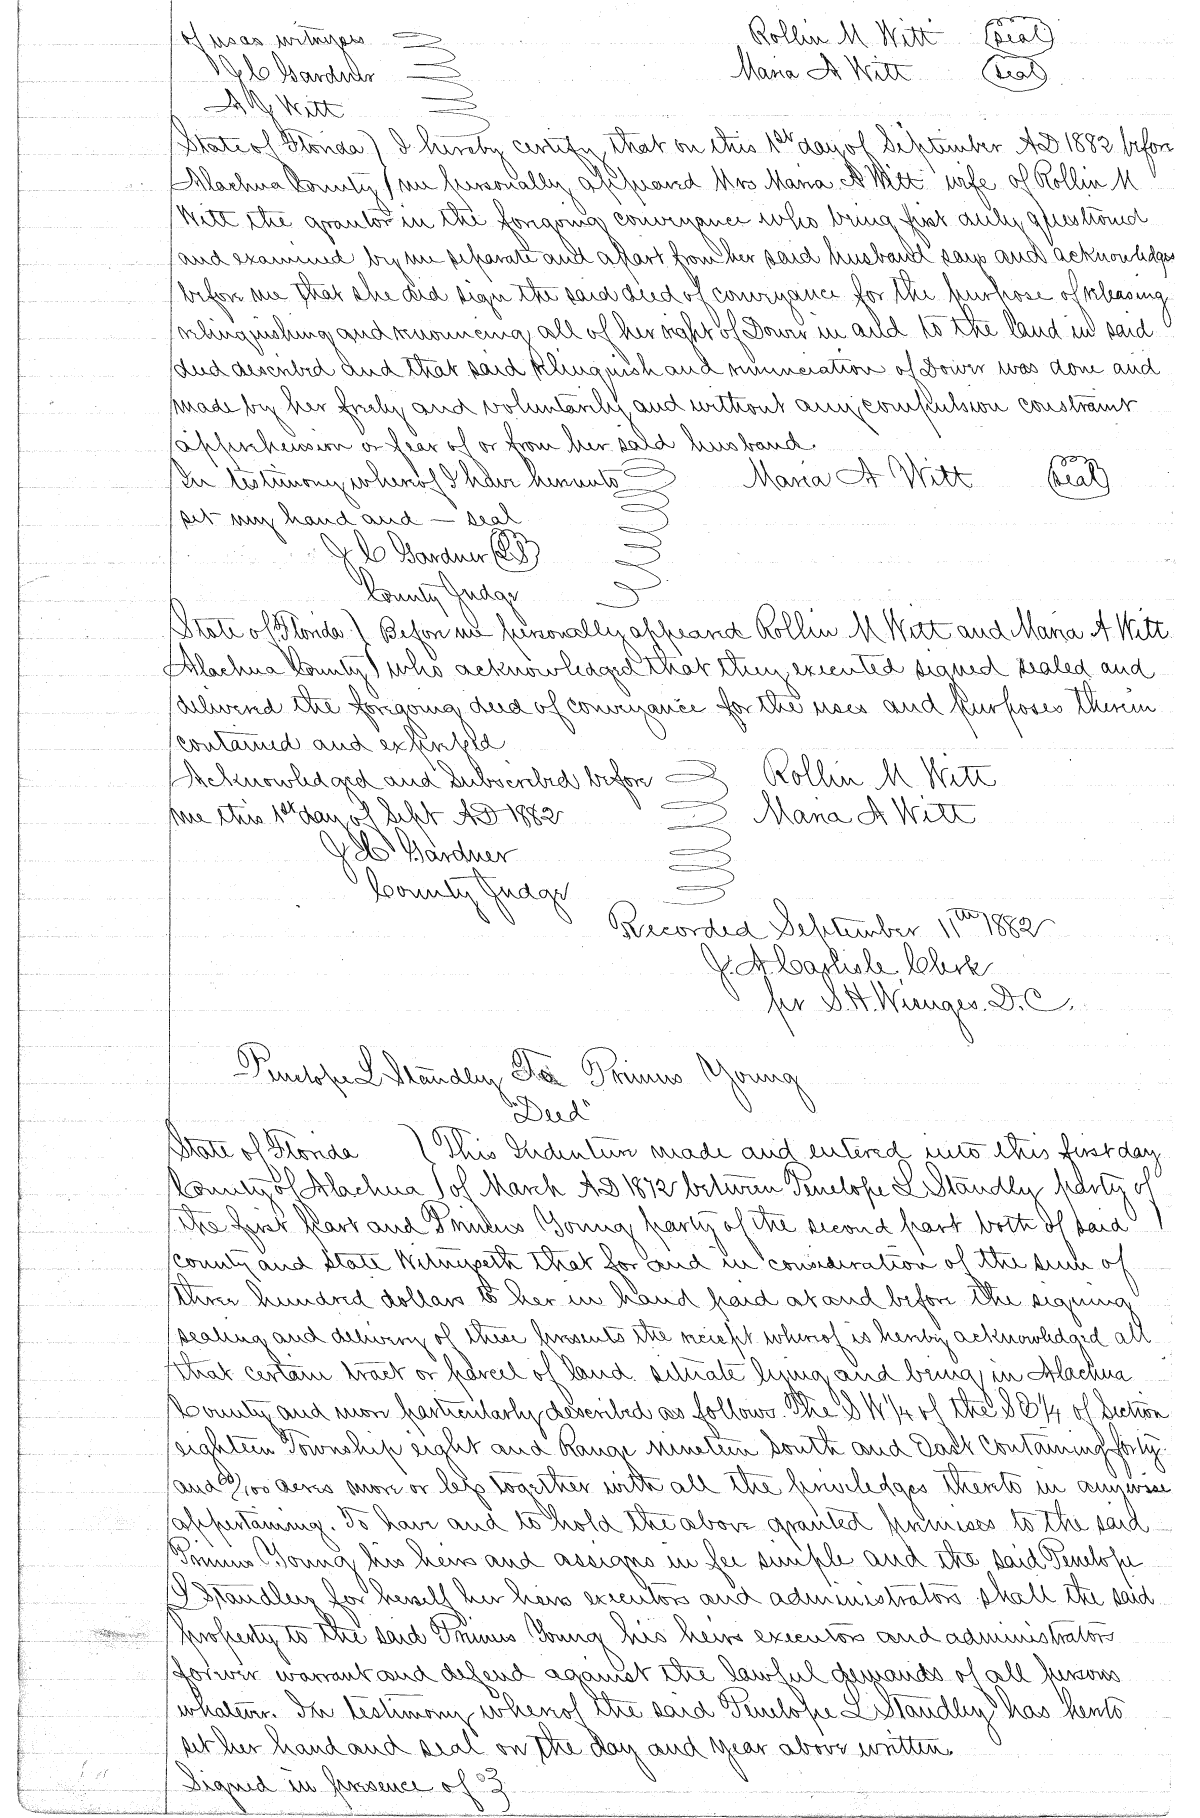 of us as witnesses
Rollin M Witt (Seal)
J C Gardner
Maria A Witt (Seal)
A J Witt
State of Florida ) I hereby certify that on this 1st day of September AD 1882 before
Alachua County ) me personally appeard Mrs Maria A Witt wife of Rollin M
Witt the grantor in the forgoing conveyance who being first duly questioned
and examined by me separate and apart from her said husband says and acknowledges
before me that she did sign the said deed of conveyance for the purpose of releasing
relinquishing and renouncing all of her right of Dower in and to the land in said
deed described and that said relinquish and renunciation of Dower was done and
made by her freely and voluntarily and without any compulsion constraint
apprehension or fear of or from her said husband
In testimony whereof I have hereunto
Maria A Witt (Seal)
set my hand and — seal
J C Gardner (LS)
County Judge
State of Florida ) Before me personally appeard Rollin M Witt and Maria A Witt
Alachua County ) who acknowledged that they executed signed sealed and
delivered the foregoing deed of conveyance for the uses and purposes therein
contained and expressed
Acknowledged and Subscribed before
Rollin M Witt
me this 1st day of Sept AD 1882
Maria A Witt
J C Gardner
County Judge
Recorded September 11th 1882
J. A. Carlisle, Clerk
per S. H. Wienges. D. C.
Penelope L Standley To Primus Young
"Deed"
State of Florida ) This Indenture made and entered into this first day
County of Alachua ) of March AD 1872 between Penelope L Standly party of
the first part and Primus Young party of the second part both of said
county and State Witnesseth that for and in consideration of the sum of
three hundred dollars to her in hand paid at and before the signing
sealing and delivery of these presents the reciept whereof is hereby acknowledged all
that certain tract or parcel of land situate lying and being in Alachua
County and more particularly described as follows. The S W 1/4 of the S E 1/4 of Section
eighteen Township eight and Range nineteen South and East Containing forty
and /100 acres more or less together with all the priviledges thereto in anywise
appertaining. To have and to hold the above granted premises to the said
Primus Young his heirs and assigns in fee simple and the said Penelope
L Standley for herself her heirs executors and administrators shall the said
property to the said Primus Young his heirs executors and administrators
forever warrant and defend against the lawful demands of all persons
whatever. In testimony whereof the said Penelope L Standley has hereto
set her hand and seal on the day and year above written.
Signed in presence of